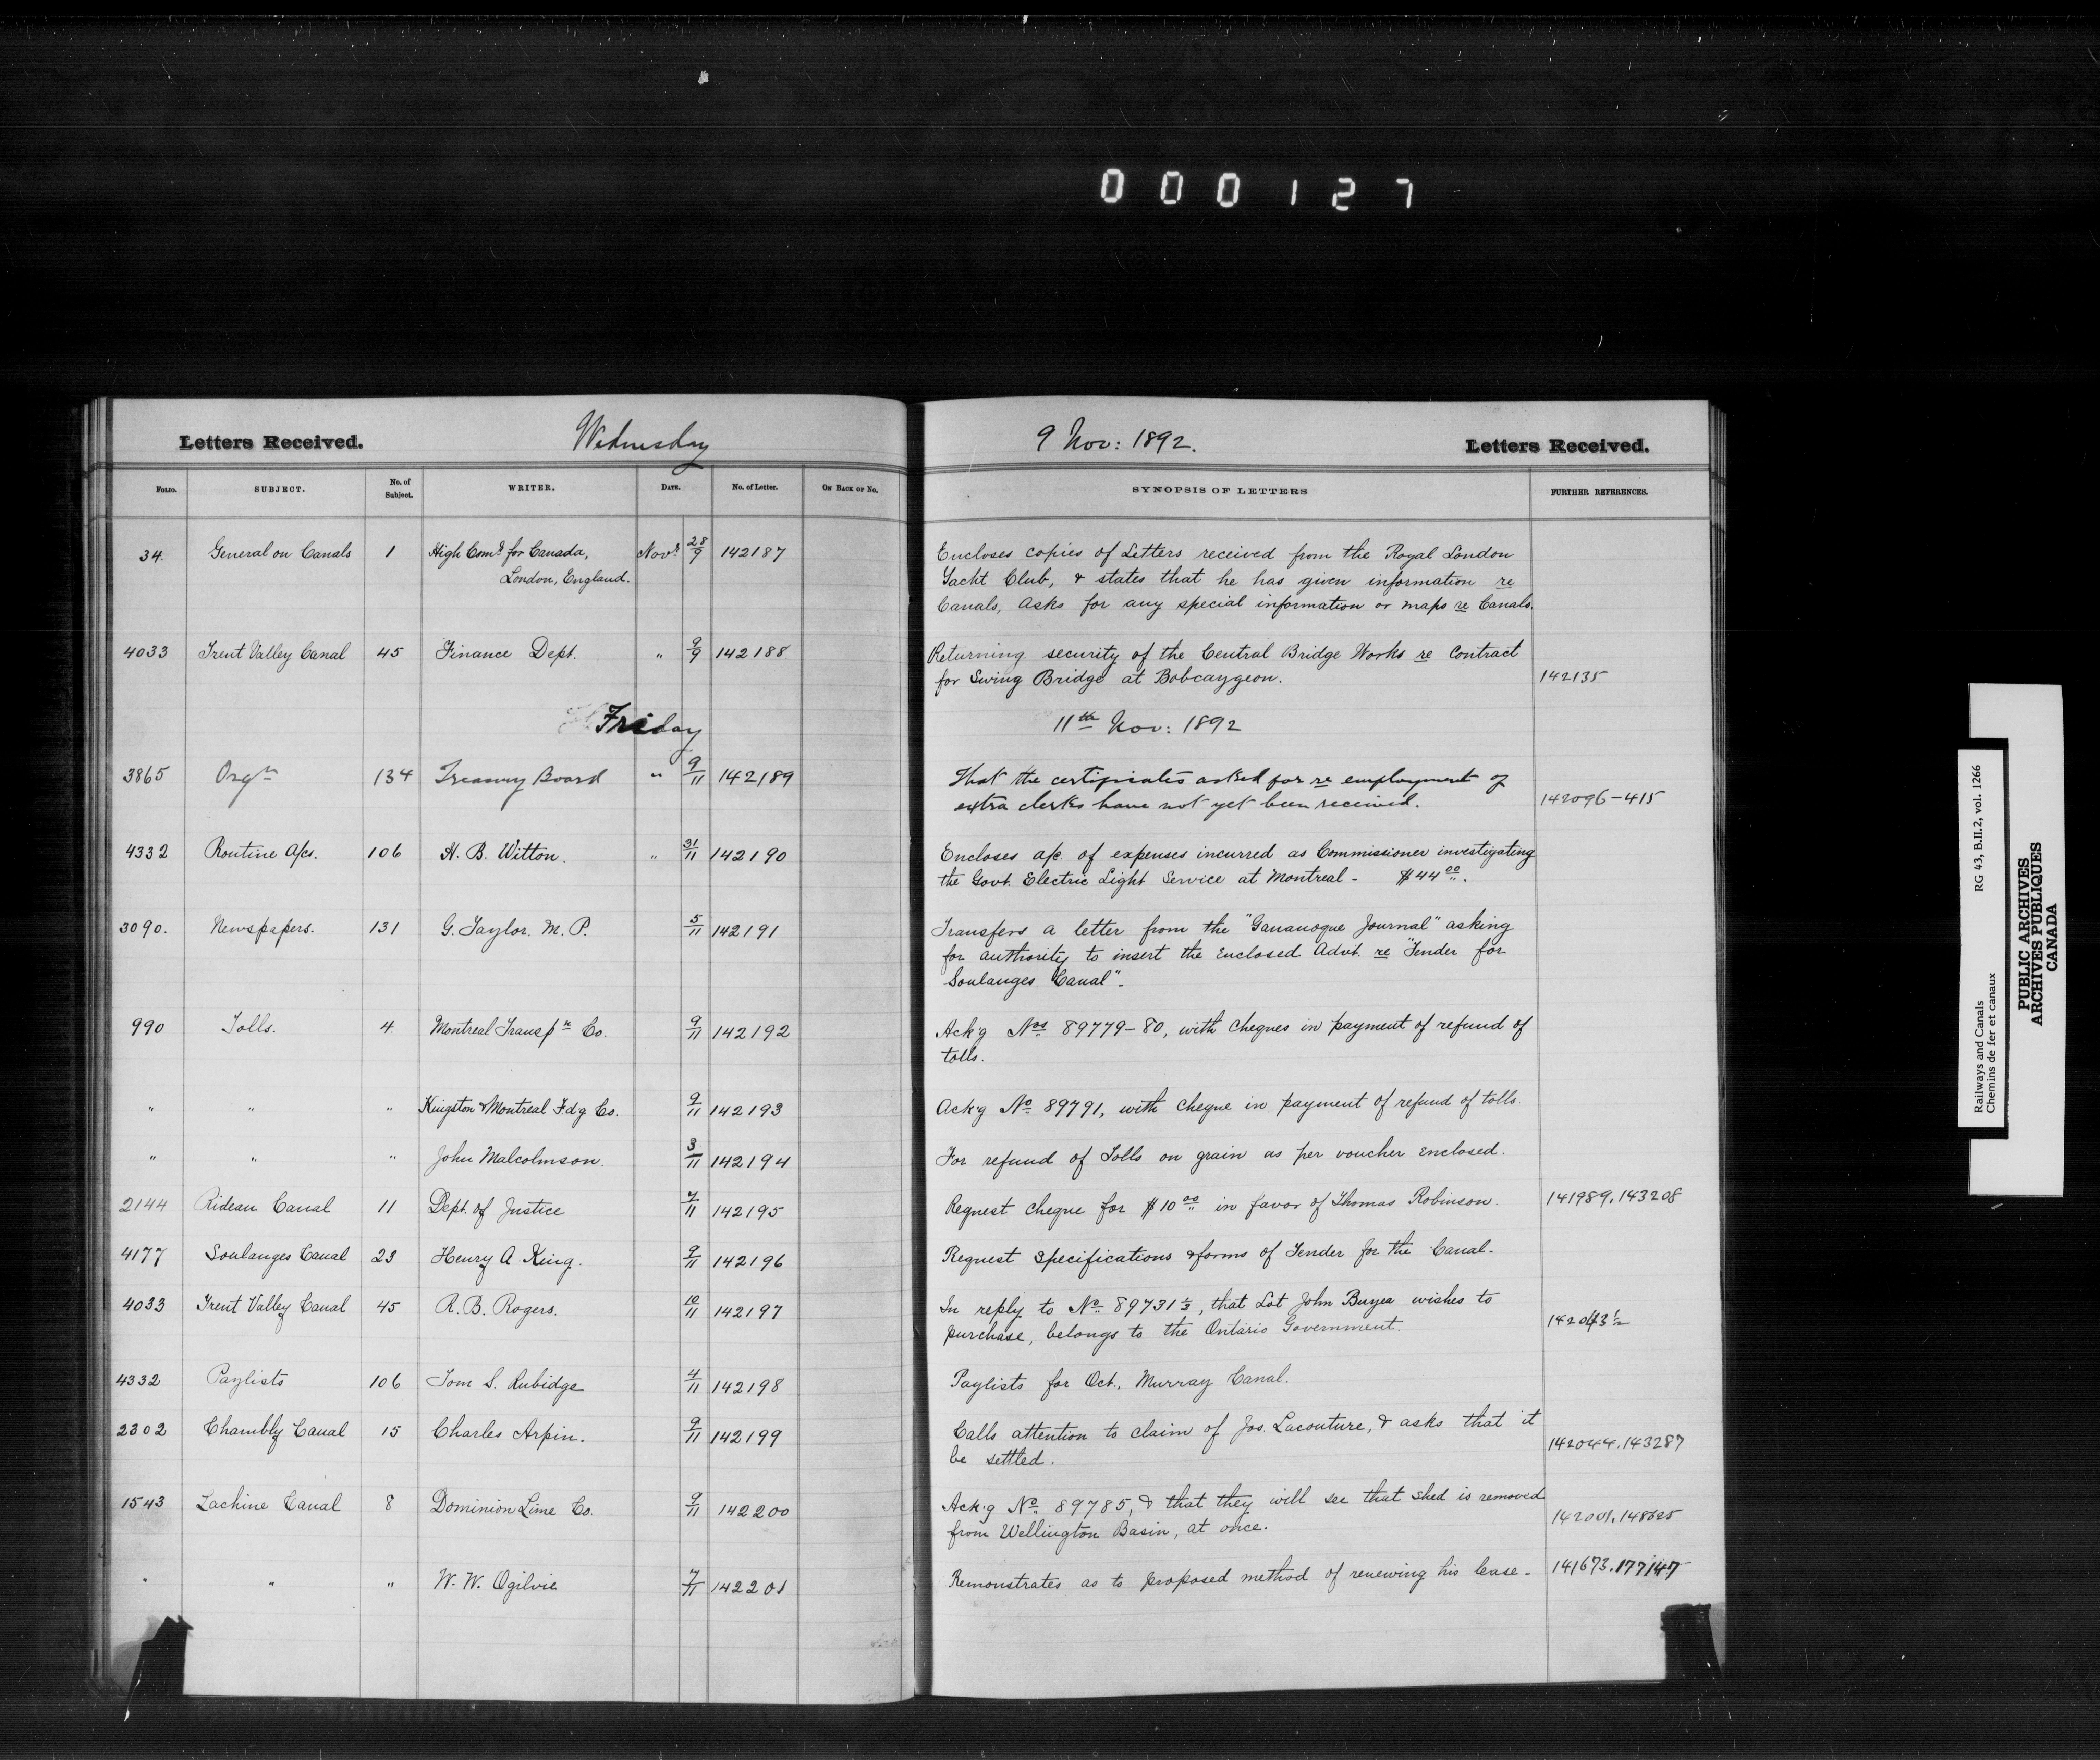 000127
Letters Received. Wednesday 9 Nov: 1892. Letters Received.
Folio. SUBJECT. No. of Subject. WRITER. DATE. No. of Letter. ON BACK OF NO. SYNOPSIS OF LETTERS FURTHER REFERENCES.
34. General on Canals 1 High Comr. for Canada, Novr. 28/9 142187 Encloses copies of Letters received from the Royal London
London, England. Yacht Club, & states that he has given information re
Canals, asks for any special information or maps re Canals.
4033 Trent Valley Canal 45 Finance Dept. " 9/9 142188 Returning security of the Central Bridge Works re Contract
for Swing Bridge at Bobcaygeon. 142135
Friday 11th Nov: 1892
3865 Orgn 134 Treasury Board " 9/11 142189 That the certificates asked for re employment of
extra clerks have not yet been received. 142096-415
4332 Routine A/cs. 106 H. B. Witton. " 31/11 142190 Encloses a/c of expenses incurred as Commissioner investigating
the Govt. Electric Light Service at Montreal - $44 00.
3090. Newspapers. 131 G. Taylor. M. P. 5/11 142191 Transfers a letter from the "Gananoque Journal" asking
for authority to insert the enclosed Advt. re "Tender for
Soulanges Canal".
990 Tolls. 4. Montreal Transpn Co. 9/11 142192 Ack'g Nos 89779-80, with cheques in payment of refund of
tolls.
" " " Kingston & Montreal Fdg Co. 9/11 142193 Ack'g No. 89791, with cheque in payment of refund of tolls.
" " " John Malcolmson. 3/11 142194 For refund of Tolls on grain as per voucher enclosed.
2144 Rideau Canal 11 Dept. of Justice 7/11 142195 Request cheque for $10 00 in favor of Thomas Robinson. 141989, 143208
4177 Soulanges Canal 23 Henry A. King. 9/11 142196 Request specifications & forms of Tender for the Canal.
4033 Trent Valley Canal 45 R. B. Rogers. 10/11 142197 In reply to No. 89731 1/2, that Lot John Buyea wishes to
purchase, belongs to the Ontario Government. 142043 1/2
4332 Paylists 106 Tom S. Rubidge 4/11 142198 Paylists for Oct., Murray Canal.
2302 Chambly Canal 15 Charles Arpin. 9/11 142199 Calls attention to claim of Jos. Lacouture, & asks that it
be settled. 142044, 143287
1543 Lachine Canal 8 Dominion Lime Co. 9/11 142200 Ack'g No. 89785, & that they will see that shed is removed
from Wellington Basin, at once. 142001,
" " " W. W. Ogilvie 7/11 142201 Remonstrates as to proposed method of renewing his lease - 141673. 177147
Railways and Canals RG 43, B.II.2, vol. 1266
Chemins de fer et canaux
PUBLIC ARCHIVES
ARCHIVES PUBLIQUES
CANADA